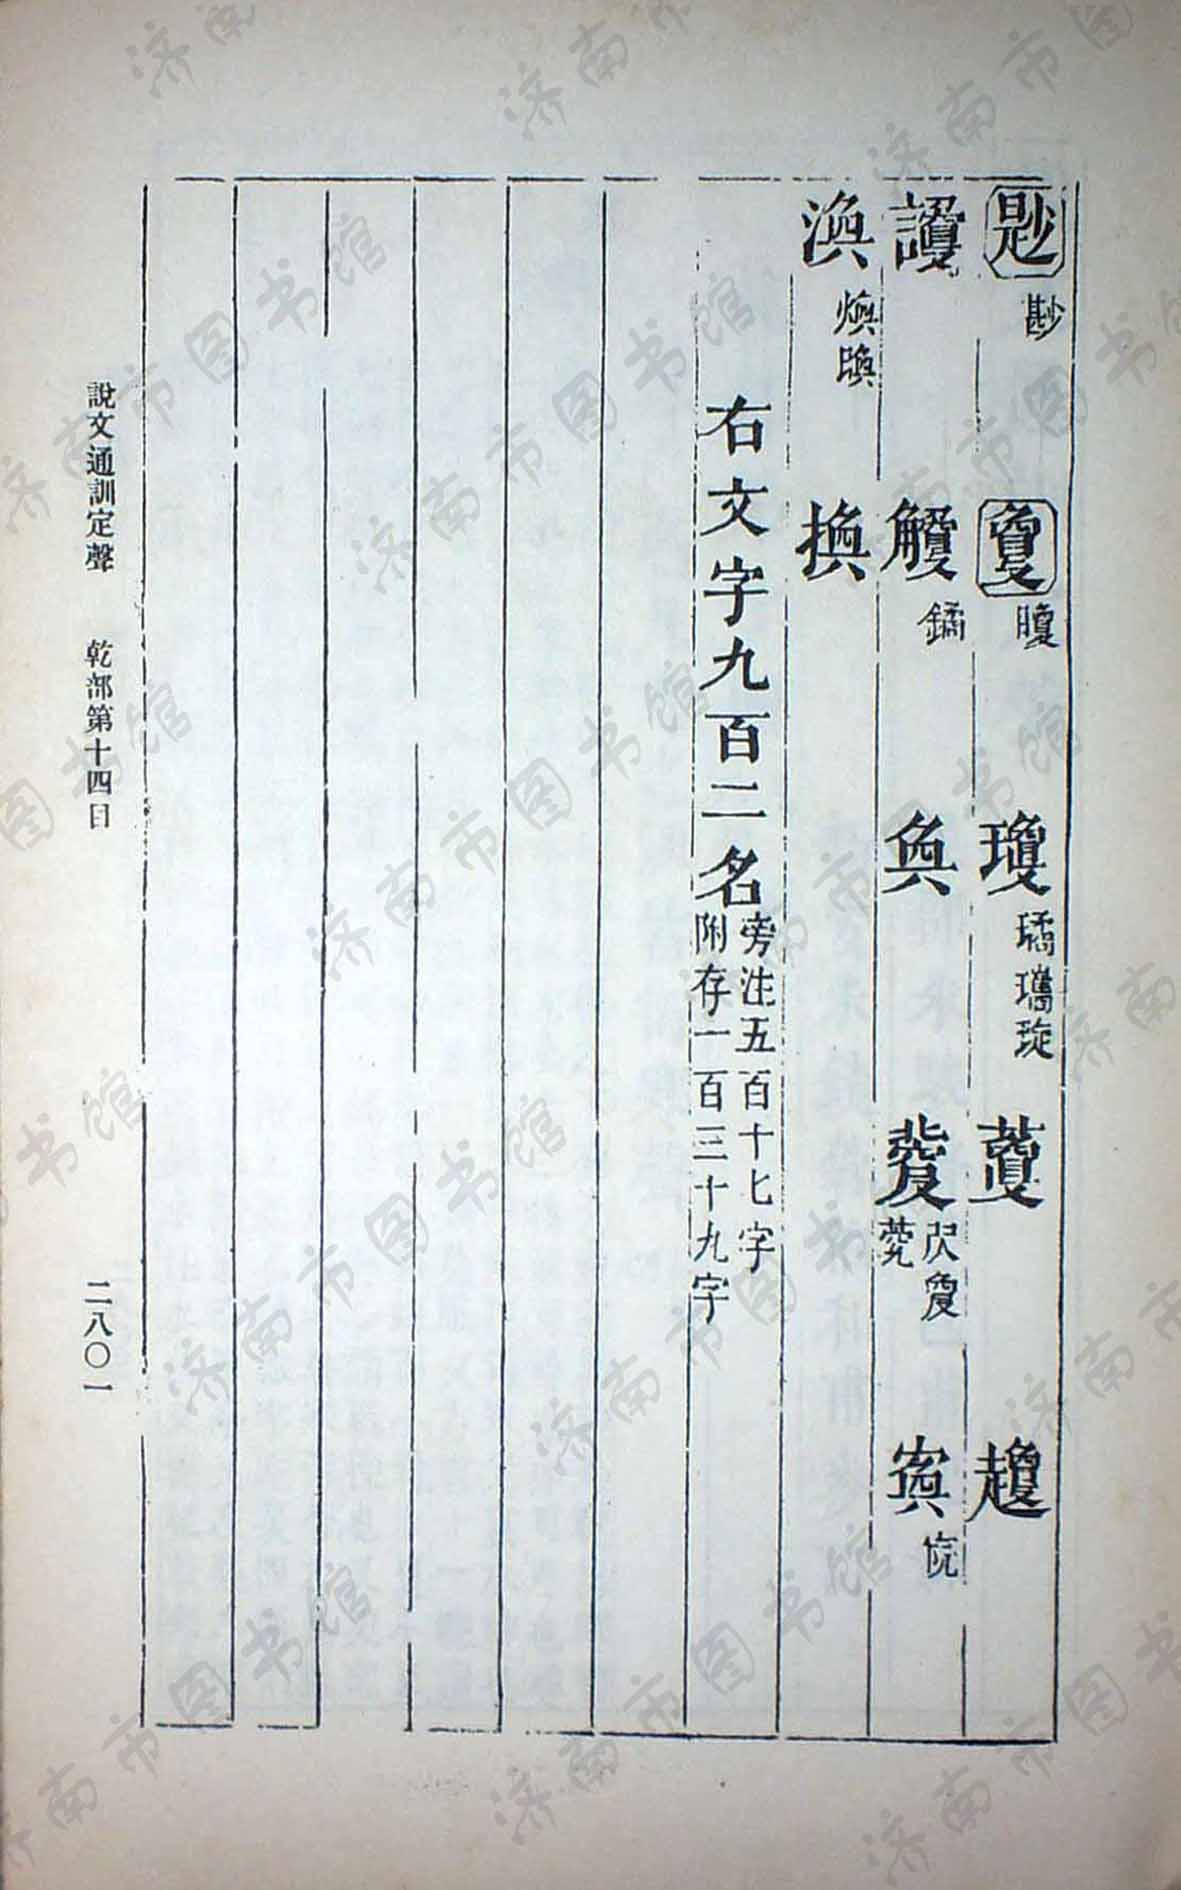 尟 尠 夐 矎 瓊 璚 瓗 琁 藑 趬
讂 觼 鐍 奐 㝁 寏 院
渙 煥 暥 換
右文字九百二名 旁注五百十七字
附存一百三十九字
說文通訓定聲 乾部第十四目 二八〇一
济南市图书馆